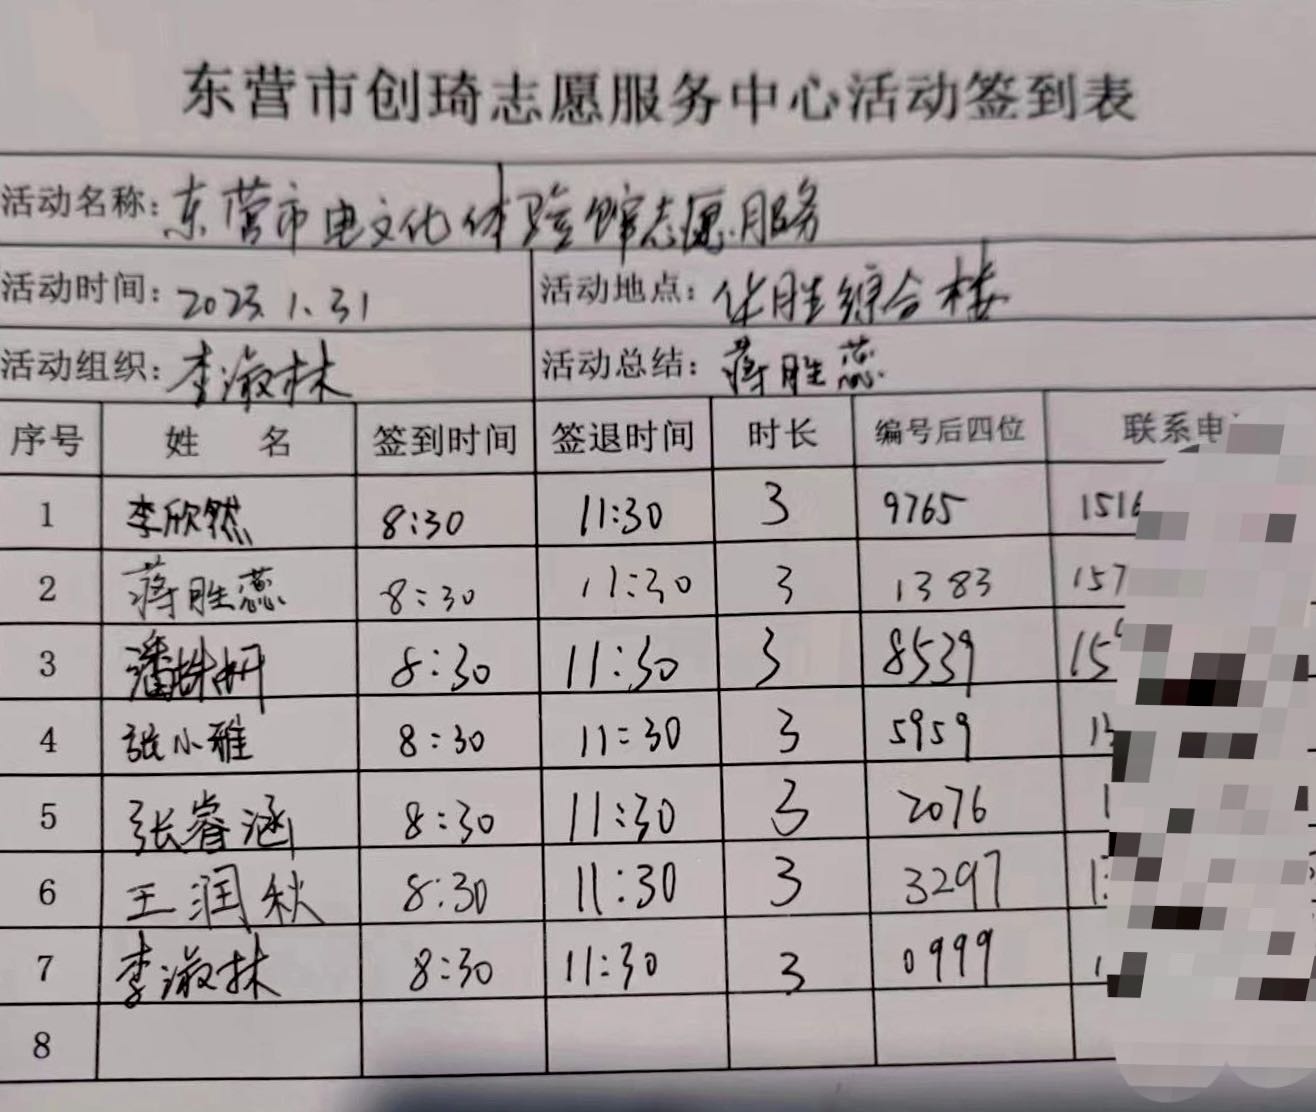 东营市创琦志愿服务中心活动签到表
活动名称: 东营市电文化体验馆志愿服务
活动时间: 2023.1.31 活动地点: 华胜综合楼
活动组织: 李淑林 活动总结: 蒋胜蕊
序号 姓 名 签到时间 签退时间 时长 编号后四位 联系电
1 李欣然 8:30 11:30 3 9765 1516
2 蒋胜蕊 8:30 11:30 3 1383 157
3 潘姝妍 8:30 11:30 3 8539 15
4 张小雅 8:30 11:30 3 5959 13
5 张睿涵 8:30 11:30 3 2076 1
6 王润秋 8:30 11:30 3 3297 1
7 李淑林 8:30 11:30 3 0999 1
8